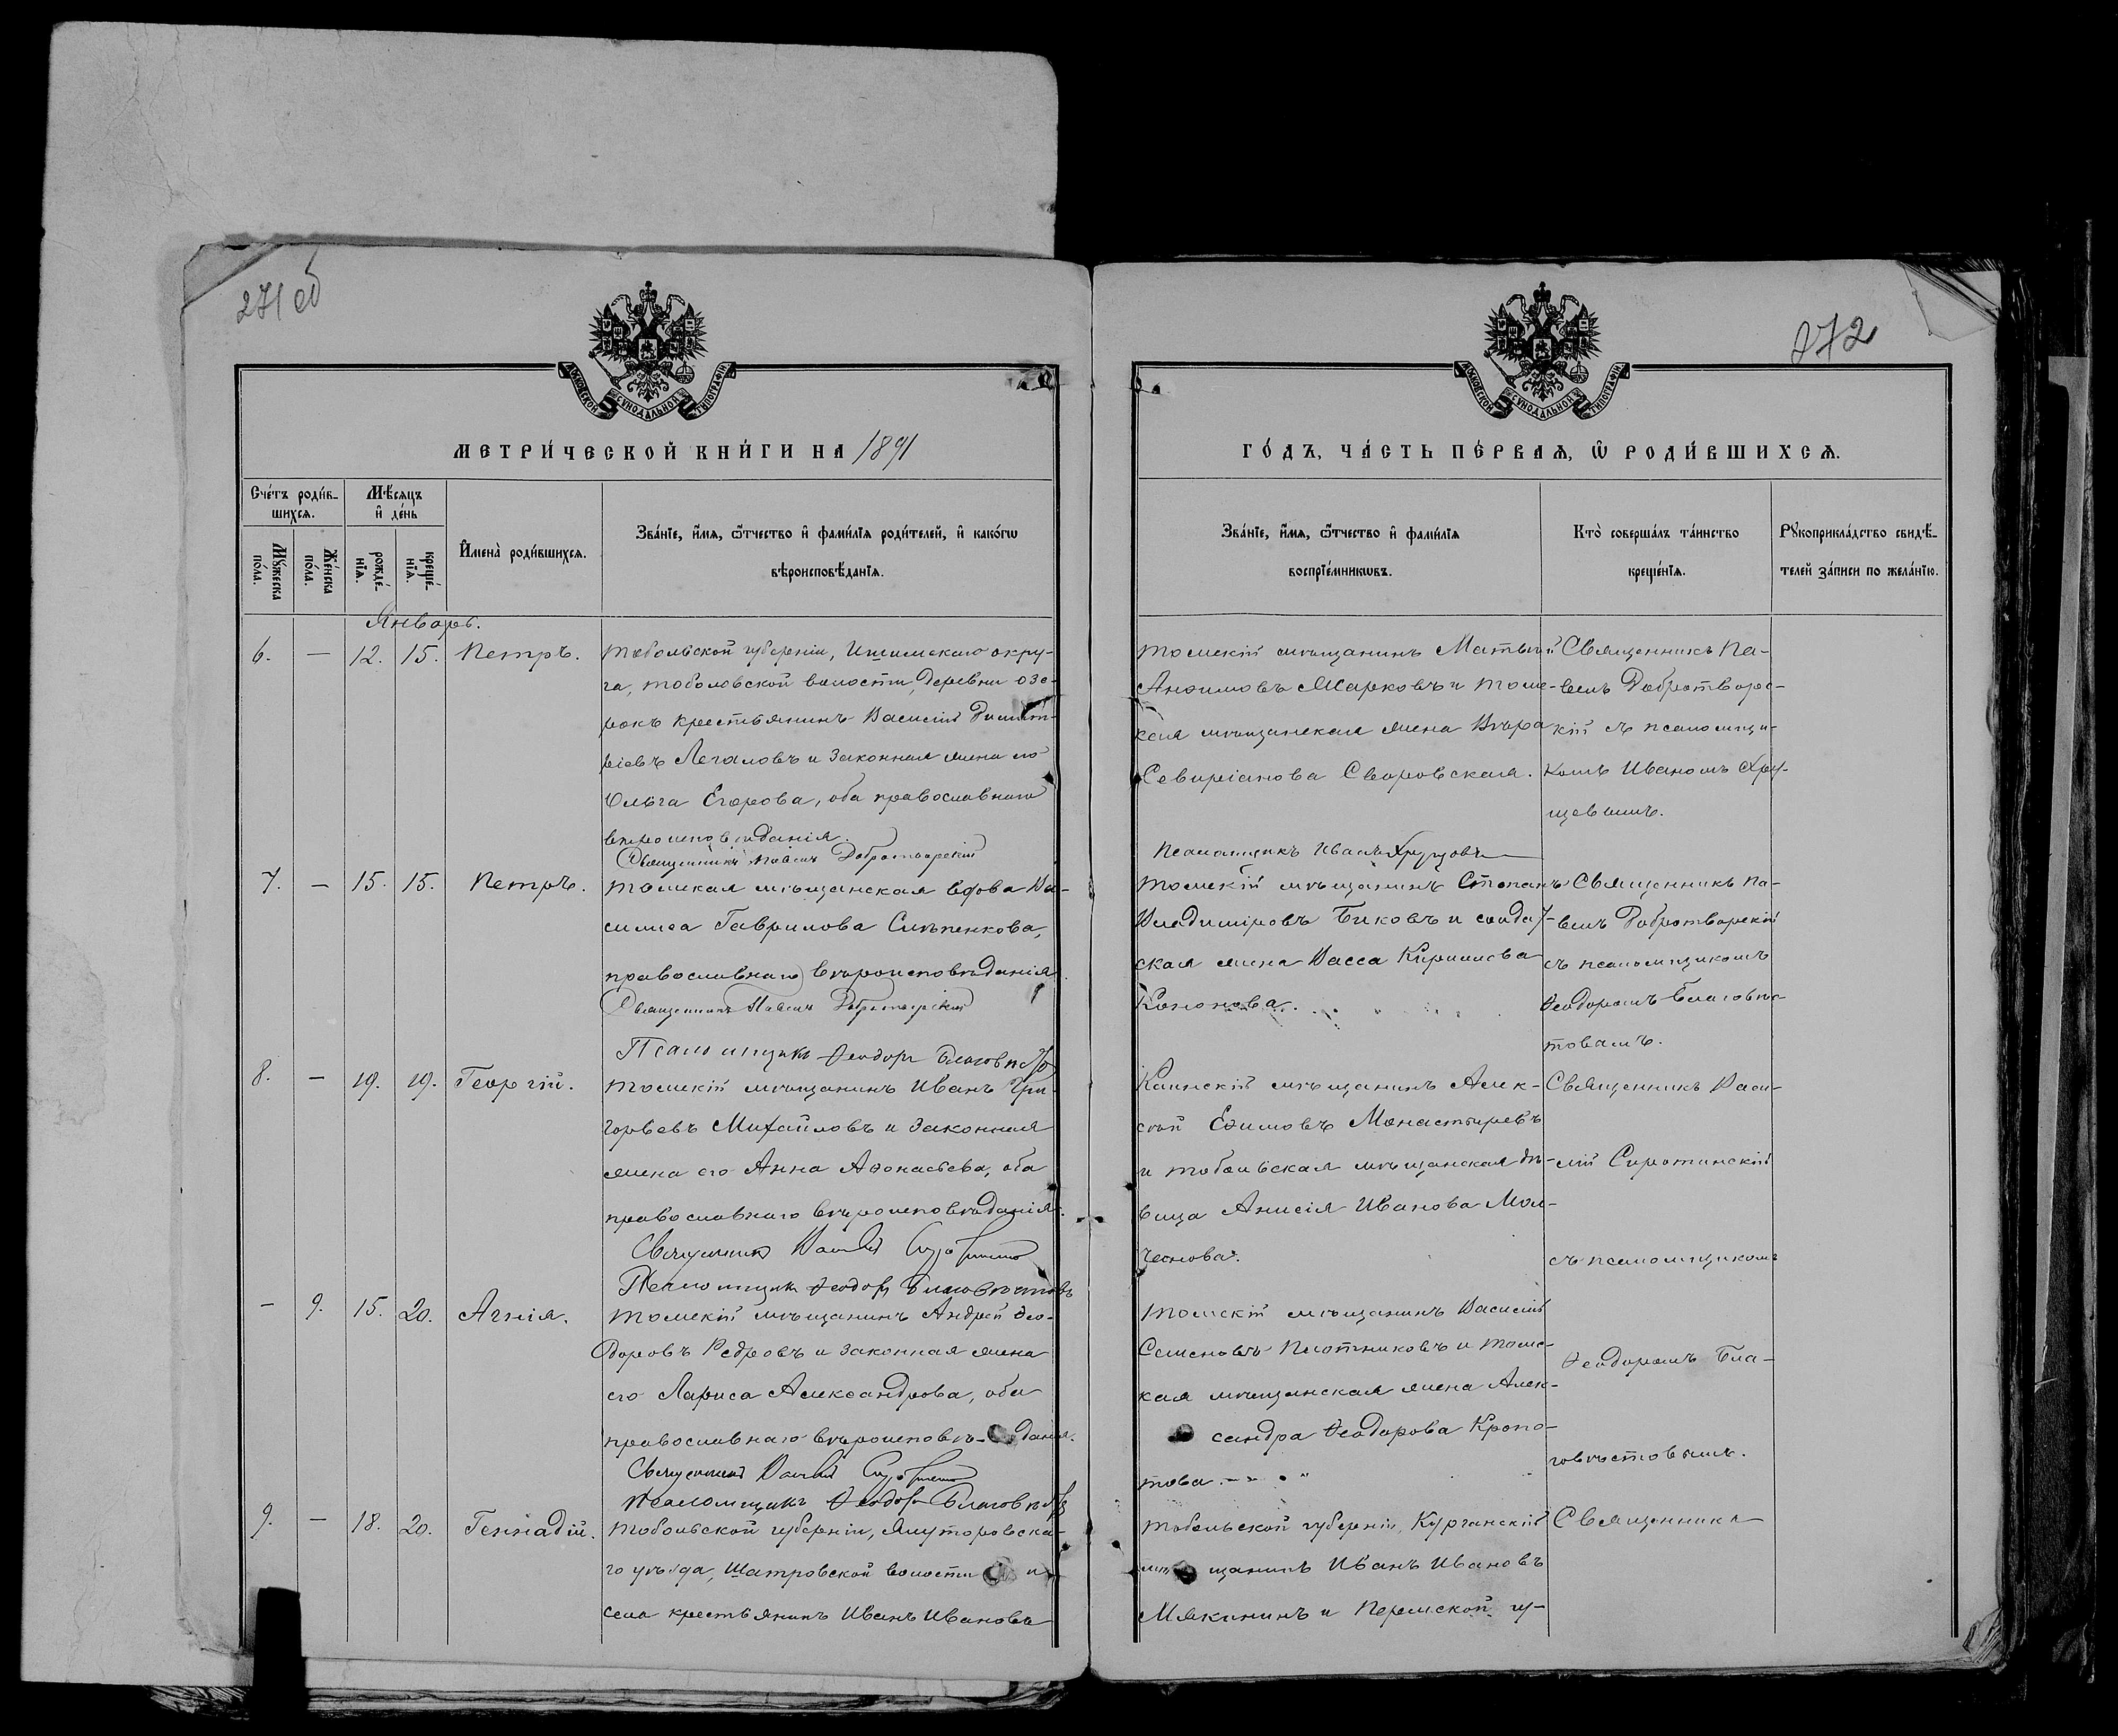 271 об
272
МОСКОВСКОЙ СѴНОДАЛЬНОЙ ТИПОГРАФІИ
МОСКОВСКОЙ СѴНОДАЛЬНОЙ ТИПОГРАФІИ
МЕТРИ́ЧЕСКОЙ КНИ́ГИ НА 1891
ГО́ДЪ, ЧА́СТЬ ПЕ́РВАѦ, Ѽ РОДИ́ВШИХСѦ.
Сче́тъ роди́в-
шихсѧ.
Мѣ́сяцъ
и҆ де́нь
Мꙋ́жеска по́ла.
Же́нска по́ла.
рожде́-
нїѧ.
креще́-
нїѧ.
И҆мена̀ роди́вшихсѧ.
Зва́нїе, и҆́мѧ, ѻ҆́тчество и҆ фами́лїѧ роди́телей, и҆ како́гѡ
вѣроисповѣ́данїѧ.
Зва́нїе, и҆́мѧ, ѻ҆́тчество и҆ фами́лїѧ
воспрїе́мникѡвъ.
Кто̀ соверша́лъ та́инство
креще́нїѧ.
Рꙋкоприкла́дство свидѣ́-
телей за́писи по жела́нїю.
Январь.
6. — 12. 15. Петръ.
Тобольской губерніи, Ишимскаго окру-
га, Тоболовской волости, деревни Озе-
рокъ крестьянинъ Василій Димит-
ріевъ Легаловъ и законная жена его
Ольга Егорова, оба православнаго
вѣроисповѣданія.
Священникъ Павелъ Добротворскій
Томскій мѣщанинъ Матвѣй
Анѳимовъ Марковъ и Томс-
кая мѣщанская жена Вѣра
Севиріанова Своровская.
Псаломщикъ Иванъ Хрущовъ
Священникъ Па-
велъ Добротворс-
кій съ псаломщи-
комъ Иваномъ Хру-
щевымъ.
7. — 15. 15. Петръ.
Томская мѣщанская вдова Ва-
силиса Гаврилова Слѣпенкова,
православнаго вѣроисповѣданія.
Священникъ Павелъ Добротворскій
Псаломщикъ Ѳеодоръ
Томскій мѣщанинъ Степанъ
Владиміровъ Быковъ и солдат-
ская жена Васса Кириллова
Кононова.
Священникъ Па-
велъ Добротворскій
съ псаломщикомъ
Ѳеодоромъ Благовѣс-
товымъ.
8. — 19. 19. Георгій.
Томскій мѣщанинъ Иванъ Гри-
горьевъ Михайловъ и законная
жена его Анна Аѳонасьева, оба
православнаго вѣроисповѣданія.
Священникъ Василій Сиротинскій
Псаломщикъ Ѳеодоръ Благовѣстовъ
Каинскій мѣщанинъ Алек-
сѣй Еѳимовъ Монастыревъ
и Тобольская мѣщанская дѣ-
вица Анисія Иванова Мол-
чанова.
Священникъ Васи-
лій Сиротинскій
съ псаломщикомъ
— 9. 15. 20. Агнія.
Томскій мѣщанинъ Андрей Ѳео-
доровъ Ѳедровъ и законная жена
его Лариса Александрова, оба
православнаго вѣроисповѣ- данія.
Священникъ Василій Сиротинскій
Псаломщикъ Ѳеодоръ
Томскій мѣщанинъ Василій
Семеновъ Плотниковъ и Томс-
кая мѣщанская жена Алек-
сандра Ѳеодорова Кропо-
това.
Ѳеодоромъ Бла-
говѣстовымъ.
9. — 18. 20. Геннадій.
Тобольской губерніи, Ялуторовска-
го уѣзда, Шатровской волости и
села крестьянинъ Иванъ Ивановъ
Тобольской губерніи, Курганскій
мѣщанинъ Иванъ Ивановъ
Мякининъ и Пермской гу-
Священникъ